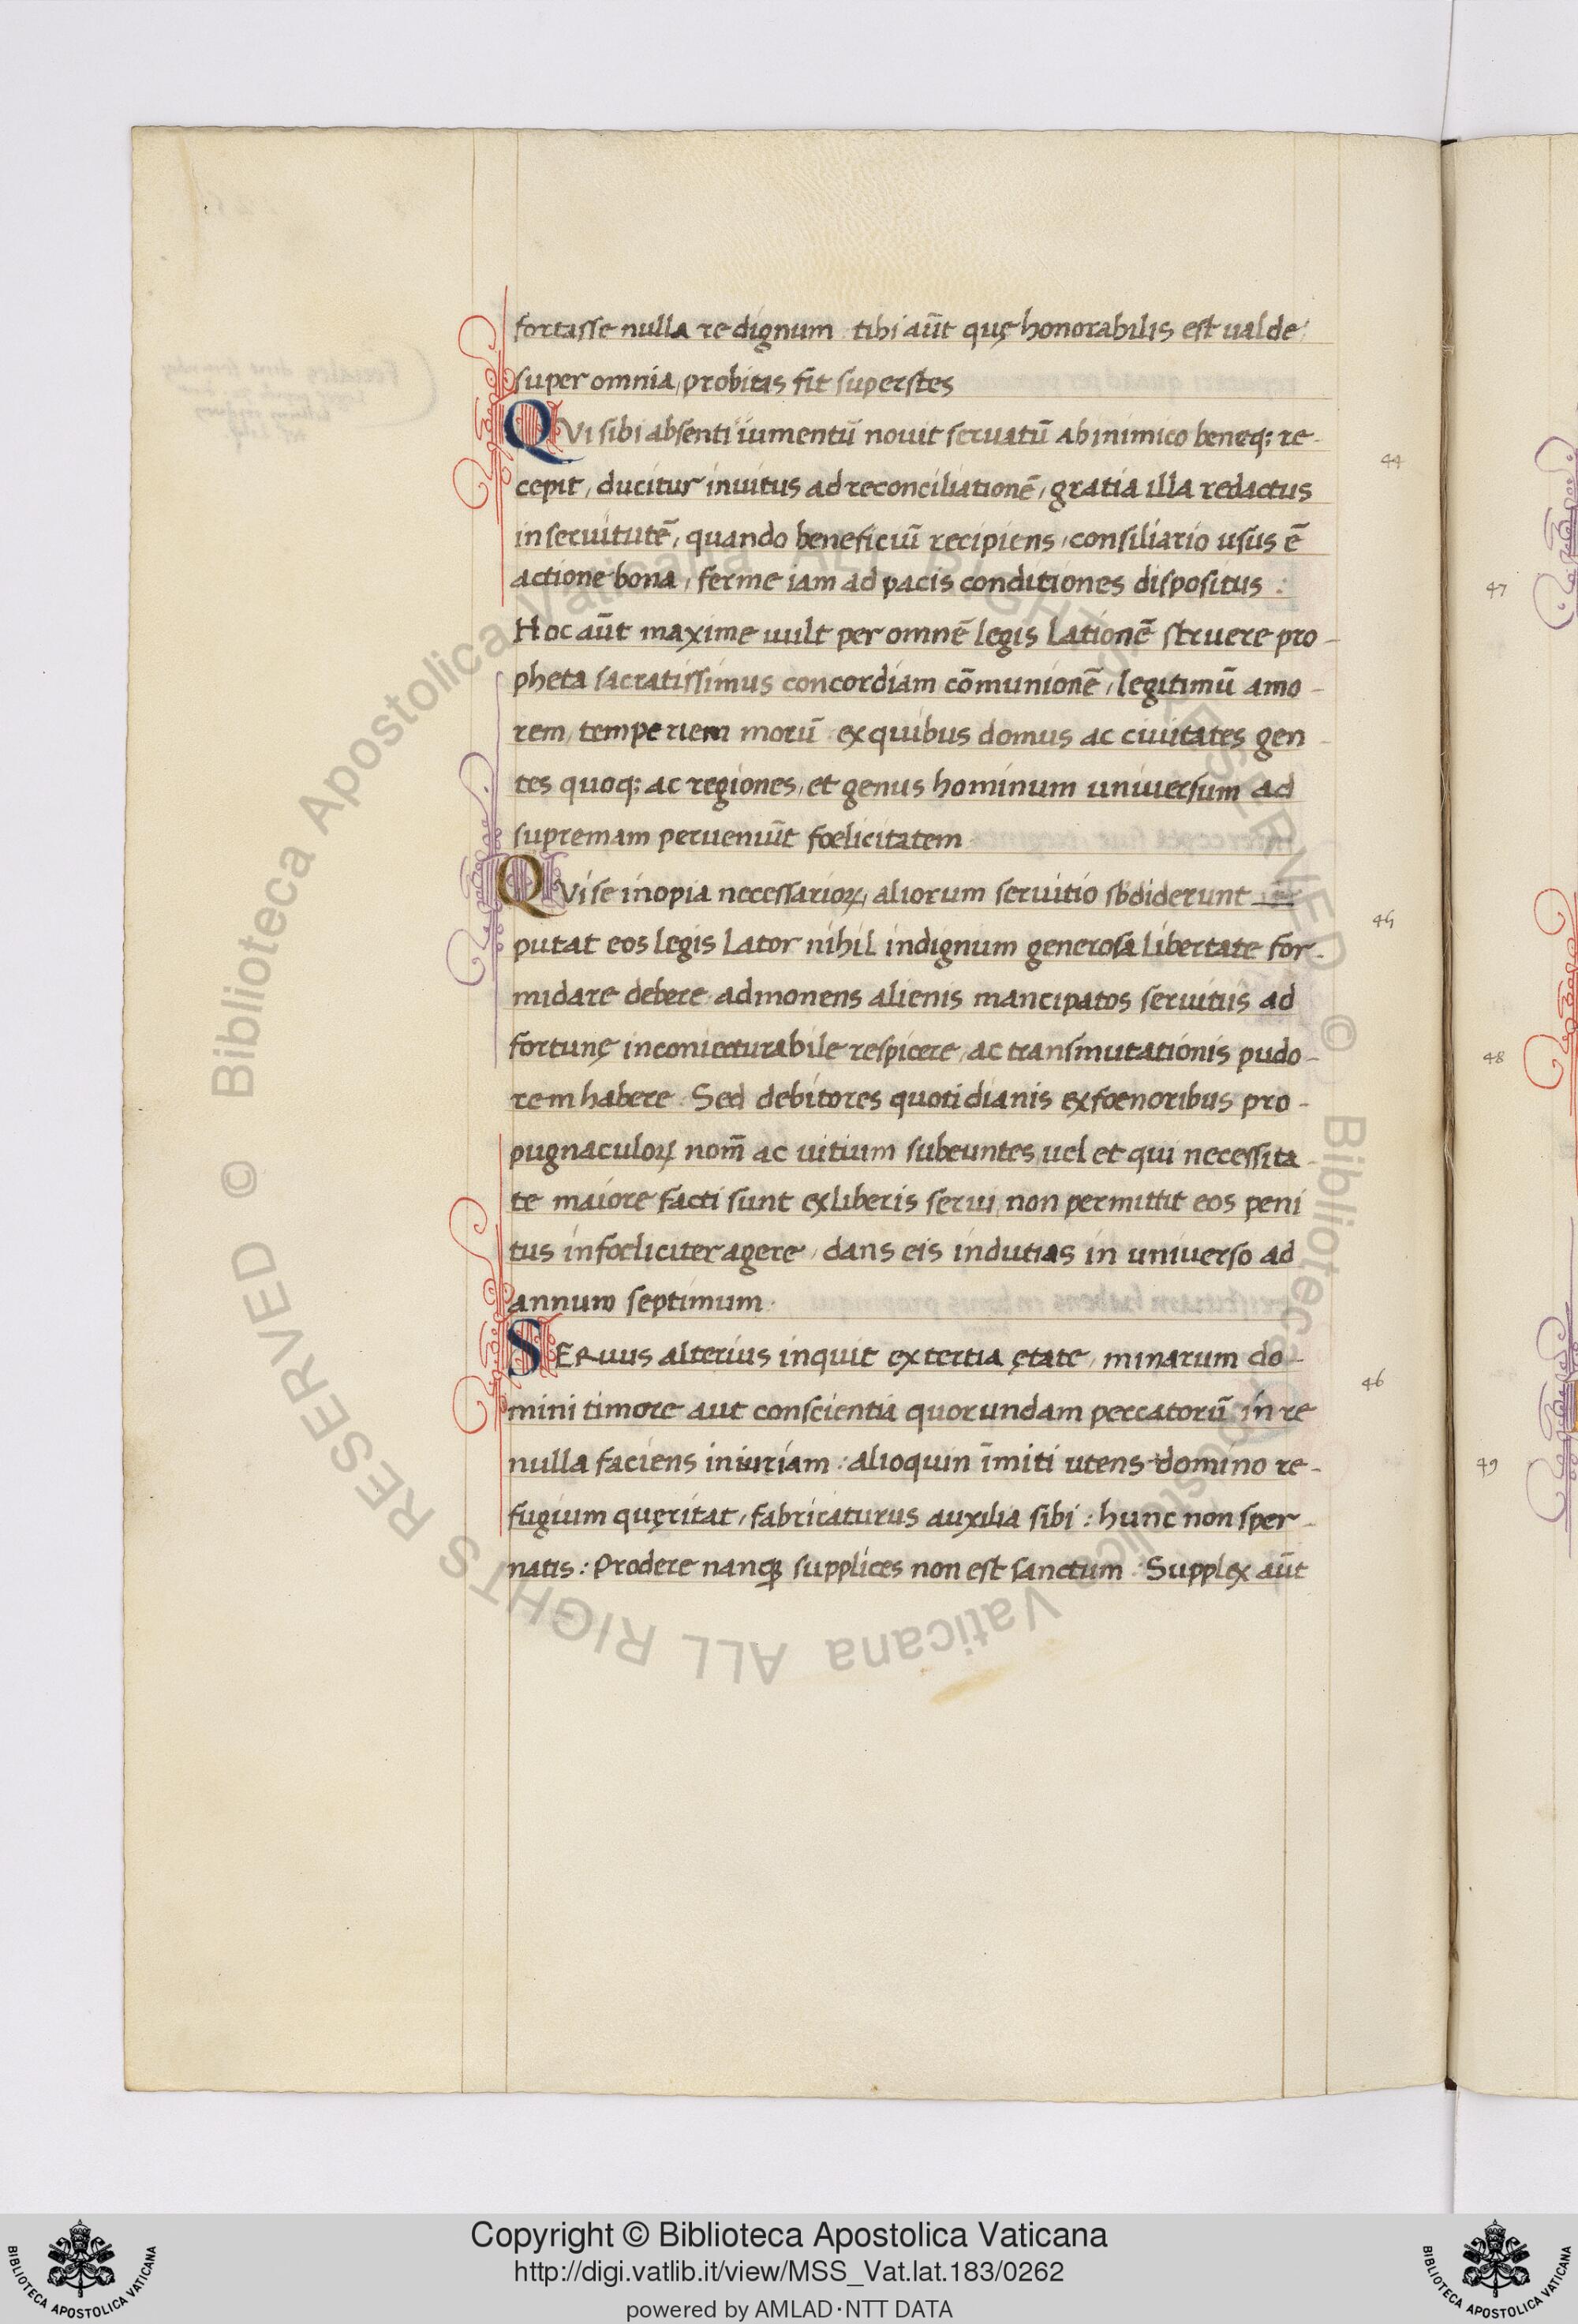 fortasse nulla re dignum tibi aūt quę honorabilis est ualde
super omnia, probitas fit superstes
QVi sibi absenti iumentū nouit seruatū ab inimico beneq; re-
cepit, ducitur inuitus ad reconciliationē, gratia illa redactus
in seruitutē, quando beneficiū recipiens, consiliario usus ē
actione bona, ferme iam ad pacis conditiones dispositus :
Hoc aūt maxime uult per omnē legis lationē struere pro-
pheta sacratissimus concordiam cōmunionē, legitimū amo-
rem, temperiem morū ex quibus domus ac ciuitates gen-
tes quoq; ac regiones, et genus hominum uniuersum ad
supremam perueniūt foelicitatem
QVi se inopia necessarioꝝ, aliorum seruitio sb̄diderunt
putat eos legis lator nihil indignum generosa libertate for-
midare debere admonens alienis mancipatos seruitiis ad
fortunę inconiecturabile respicere, ac transmutationis pudo-
rem habere. Sed debitores quotidianis ex foenoribus pro-
pugnaculoꝝ nom̄ ac uitium subeuntes, uel et qui necessita-
te maiore facti sunt ex liberis serui, non permittit eos peni
tus infoeliciter agere, dans eis indutias in uniuerso ad
annum septimum.
SERuus alterius inquit ex tertia ętate, minarum do-
mini timore aut conscientia quorundam peccatorū in re
nulla faciens iniuriam : alioquin īmiti utens domino re-
fugium quęritat, fabricaturus auxilia sibi : hunc non sper-
natis : Prodere nanqꝫ supplices non est sanctum : Supplex aūt
44
45
46
47
48
49
© Biblioteca Apostolica Vaticana ALL RIGHTS RESERVED © Biblioteca Apostolica Vaticana ALL RIGHTS RESERVED
Copyright © Biblioteca Apostolica Vaticana
http://digi.vatlib.it/view/MSS_Vat.lat.183/0262
powered by AMLAD·NTT DATA
BIBLIOTECA APOSTOLICA VATICANA
BIBLIOTECA APOSTOLICA VATICANA